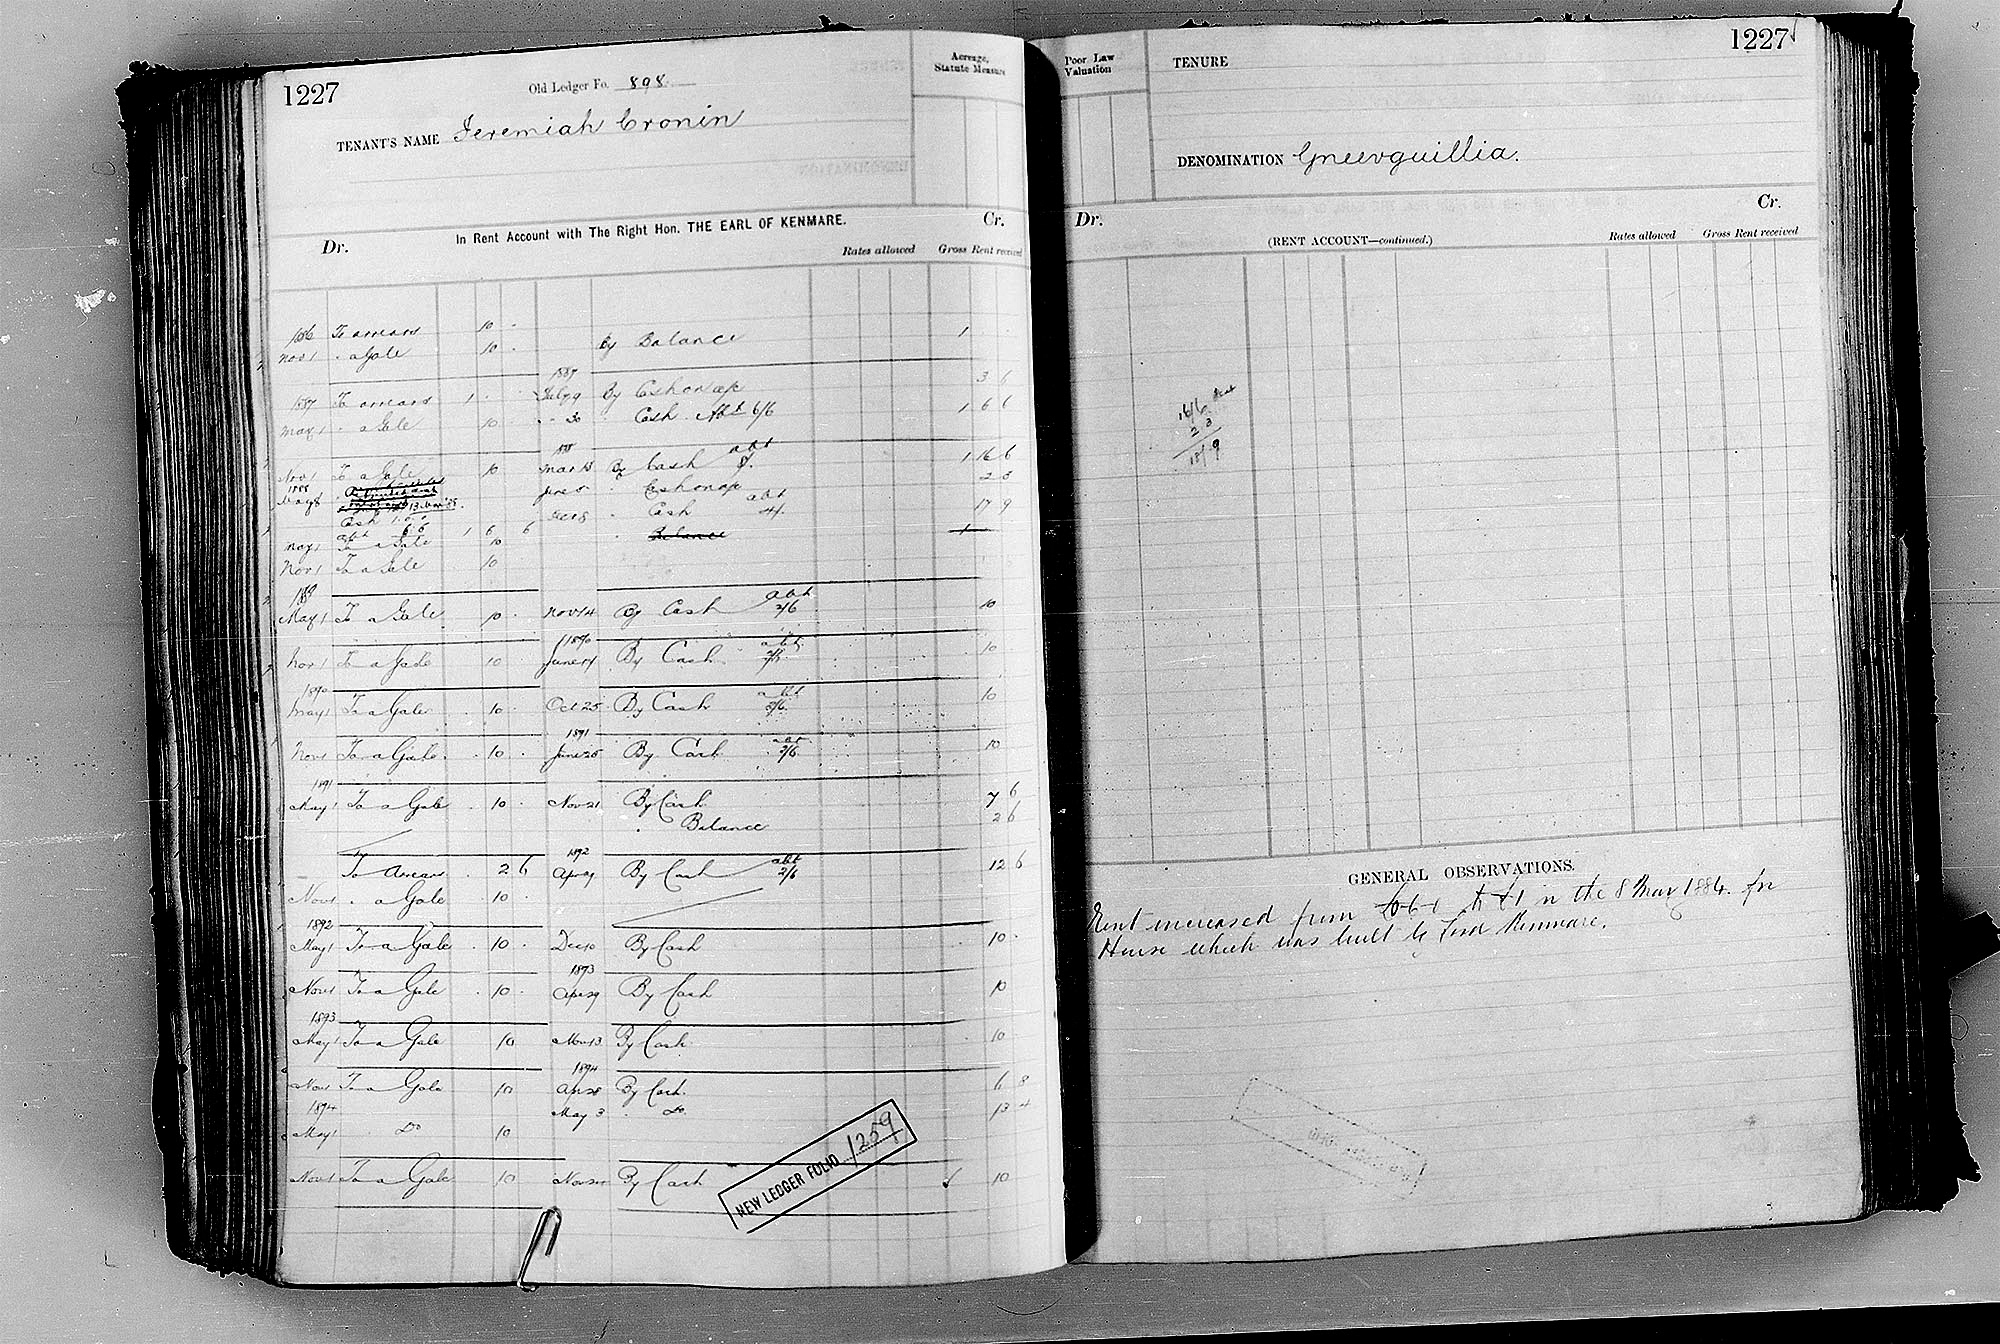 1227
Old Ledger Fo. 898
Acreage, Statute Measure
TENANT'S NAME Jeremiah Cronin
In Rent Account with The Right Hon. THE EARL OF KENMARE.
Dr. Cr.
Rates allowed Gross Rent received
1886 To arrears 10
Nov 1 " a Gale 10 By Balance 1
1887
1887 To arrears 1 July 9 By Cash on a/c 3 6
May 1 " a Gale 10 " 30 " Cash Abt 6/6 1 6 6
1888 abt
Nov 1 To a Gale 10 Mar 13 By Cash 1 16 6
1888
May 8 June 5 " Cash on a/c 2 3
Cash 1.0.0 Dec 8 " Cash abt 17 9
abt 6 6 1 6 6 " Balance 1
May 1 To a Gale 10
Nov 1 To a Gale 10
1889
May 1 To a Gale 10 Nov 14 By Cash abt 2/6 10
1890
Nov 1 To a Gale 10 June 14 By Cash abt 10
1890
May 1 To a Gale 10 Oct 25 By Cash abt 10
1891
Nov 1 To a Gale 10 June 25 By Cash abt 2/6 10
1891
May 1 To a Gale 10 Nov 21 By Cash 7 6
" Balance 2 6
1892
To Arrears 2 6 Apr 9 By Cash abt 2/6 12 6
Nov 1 " a Gale 10
1892
May 1 To a Gale 10 Dec 10 By Cash 10
1893
Nov 1 To a Gale 10 Apr 29 By Cash 10
1893
May 1 To a Gale 10 Nov 13 By Cash 10
1894
Nov 1 To a Gale 10 Apr 28 By Cash 6 8
1894 May 3 " Do 13 4
May 1 Do 10
Nov 1 To a Gale 10 Nov By Cash 10
NEW LEDGER FOLIO 1259
1227
Poor Law Valuation
TENURE
DENOMINATION Gneevguillia.
Dr. Cr.
(RENT ACCOUNT—continued.)
Rates allowed Gross Rent received
16/6
2 3
18/9
GENERAL OBSERVATIONS.
Rent increased from to £1 in the 8 May 1884 for
House which was built by Lord Kenmare.